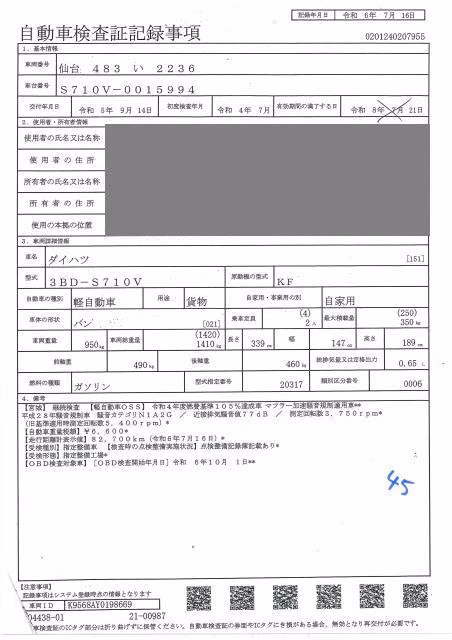 記録年月日 令和 6年 7月 16日
自動車検査証記録事項
0201240207955
1. 基本情報
車両番号 仙台 483 い 2236
車台番号 S710V-0015994
交付年月日 令和 5年 9月 14日 初度検査年月 令和 4年 7月 有効期間の満了する日 令和 8年 7月 21日
2. 使用者・所有者情報
使用者の氏名又は名称
使用者の住所
所有者の氏名又は名称
所有者の住所
使用の本拠の位置
3. 車両詳細情報
車名 ダイハツ [151]
型式 3BD-S710V 原動機の型式 KF
自動車の種別 軽自動車 用途 貨物 自家用・事業用の別 自家用
車体の形状 バン [021] 乗車定員 (4) 2人 最大積載量 (250) 350kg
車両重量 950kg 車両総重量 (1420) 1410kg 長さ 339cm 幅 147cm 高さ 189cm
前軸重 490kg 後軸重 460kg 総排気量又は定格出力 0.65L
燃料の種類 ガソリン 型式指定番号 20317 類別区分番号 0006
4. 備考
【宮城】 継続検査 【軽自動車OSS】 令和4年度燃費基準105%達成車 マフラー加速騒音規制適用車**
平成28年騒音規制車 騒音カテゴリN1A2G / 近接排気騒音値77dB / 測定回転数3,750rpm*
(旧基準適用時測定回転数5,400rpm)*
【自動車重量税額】 ¥6,600*
【走行距離計表示値】 82,700km (令和6年7月16日)*
【受検種別】指定整備車 【検査時の点検整備実施状況】点検整備記録簿記載あり*
【受検形態】指定整備工場*
【OBD検査対象車】 [OBD検査開始年月日] 令和 6年10月 1日**
45
【注意事項】
記録事項はシステム登録時点の情報となります
車両ID K9568AY0198669
04438-01 21-00987
車検査証のICタグ部分は折り曲げずに保管ください。自動車検査証の券面やICタグにき損がある場合、無効となり再交付が必要です。